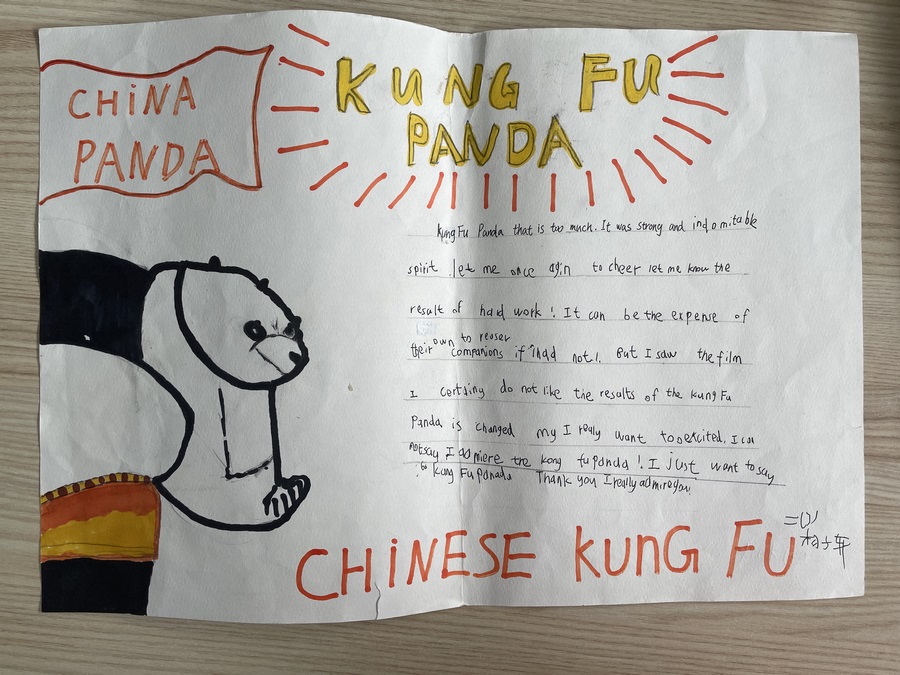 CHiNA
PANDA
KUNG FU
PANDA
Kung Fu Panda that is too much. It was strong and indomitable
spirit let me once agin to cheer let me know the
result of hard work! It can be the expense of
their own to reuser
companions if ihad not1. But I saw the film
I certainy do not like the results of the kung Fu
Panda is changed my I realy want to excited. I can
notsay I admiere the kong fu panda! I just want to say
to kung Fu Panada Thank you I really admire you!
CHiNESE KUNG FU